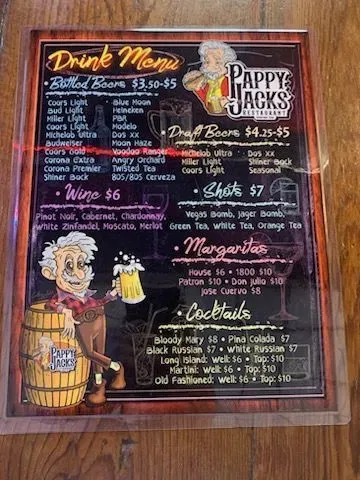 Drink Menu
PAPPY JACKS
RESTAURANT
• Bottled Beers $3.50-$5
Coors Light • Blue Moon
Bud Light Heineken
Miller Light PBR
Coors Light Modelo
Michelob Ultra Dos XX
Budweiser Moon Haze
Coors Gold Voodoo Ranger
Corona Extra Angry Orchard
Corona Premier Twisted Tea
Shiner Bock 805/805 Cerveza
• Draft Beers $4.25-$5
Michelob Ultra • Dos XX
Miller Light Shiner Bock
Coors Light Seasonal
• Wine $6
Pinot Noir, Cabernet, Chardonnay,
White Zinfandel, Moscato, Merlot
• Shots $7
Vegas Bomb, Jager Bomb,
Green Tea, White Tea, Orange Tea
• Margaritas
House $6 • 1800 $10
Patron $10 • Don Julio $10
Jose Cuervo $8
• Cocktails
Bloody Mary $8 • Pina Colada $7
Black Russian $7 • White Russian $7
Long Island: Well: $6 • Top: $10
Martini: Well: $6 • Top: $10
Old Fashioned: Well: $6 • Top: $10
PAPPY JACKS